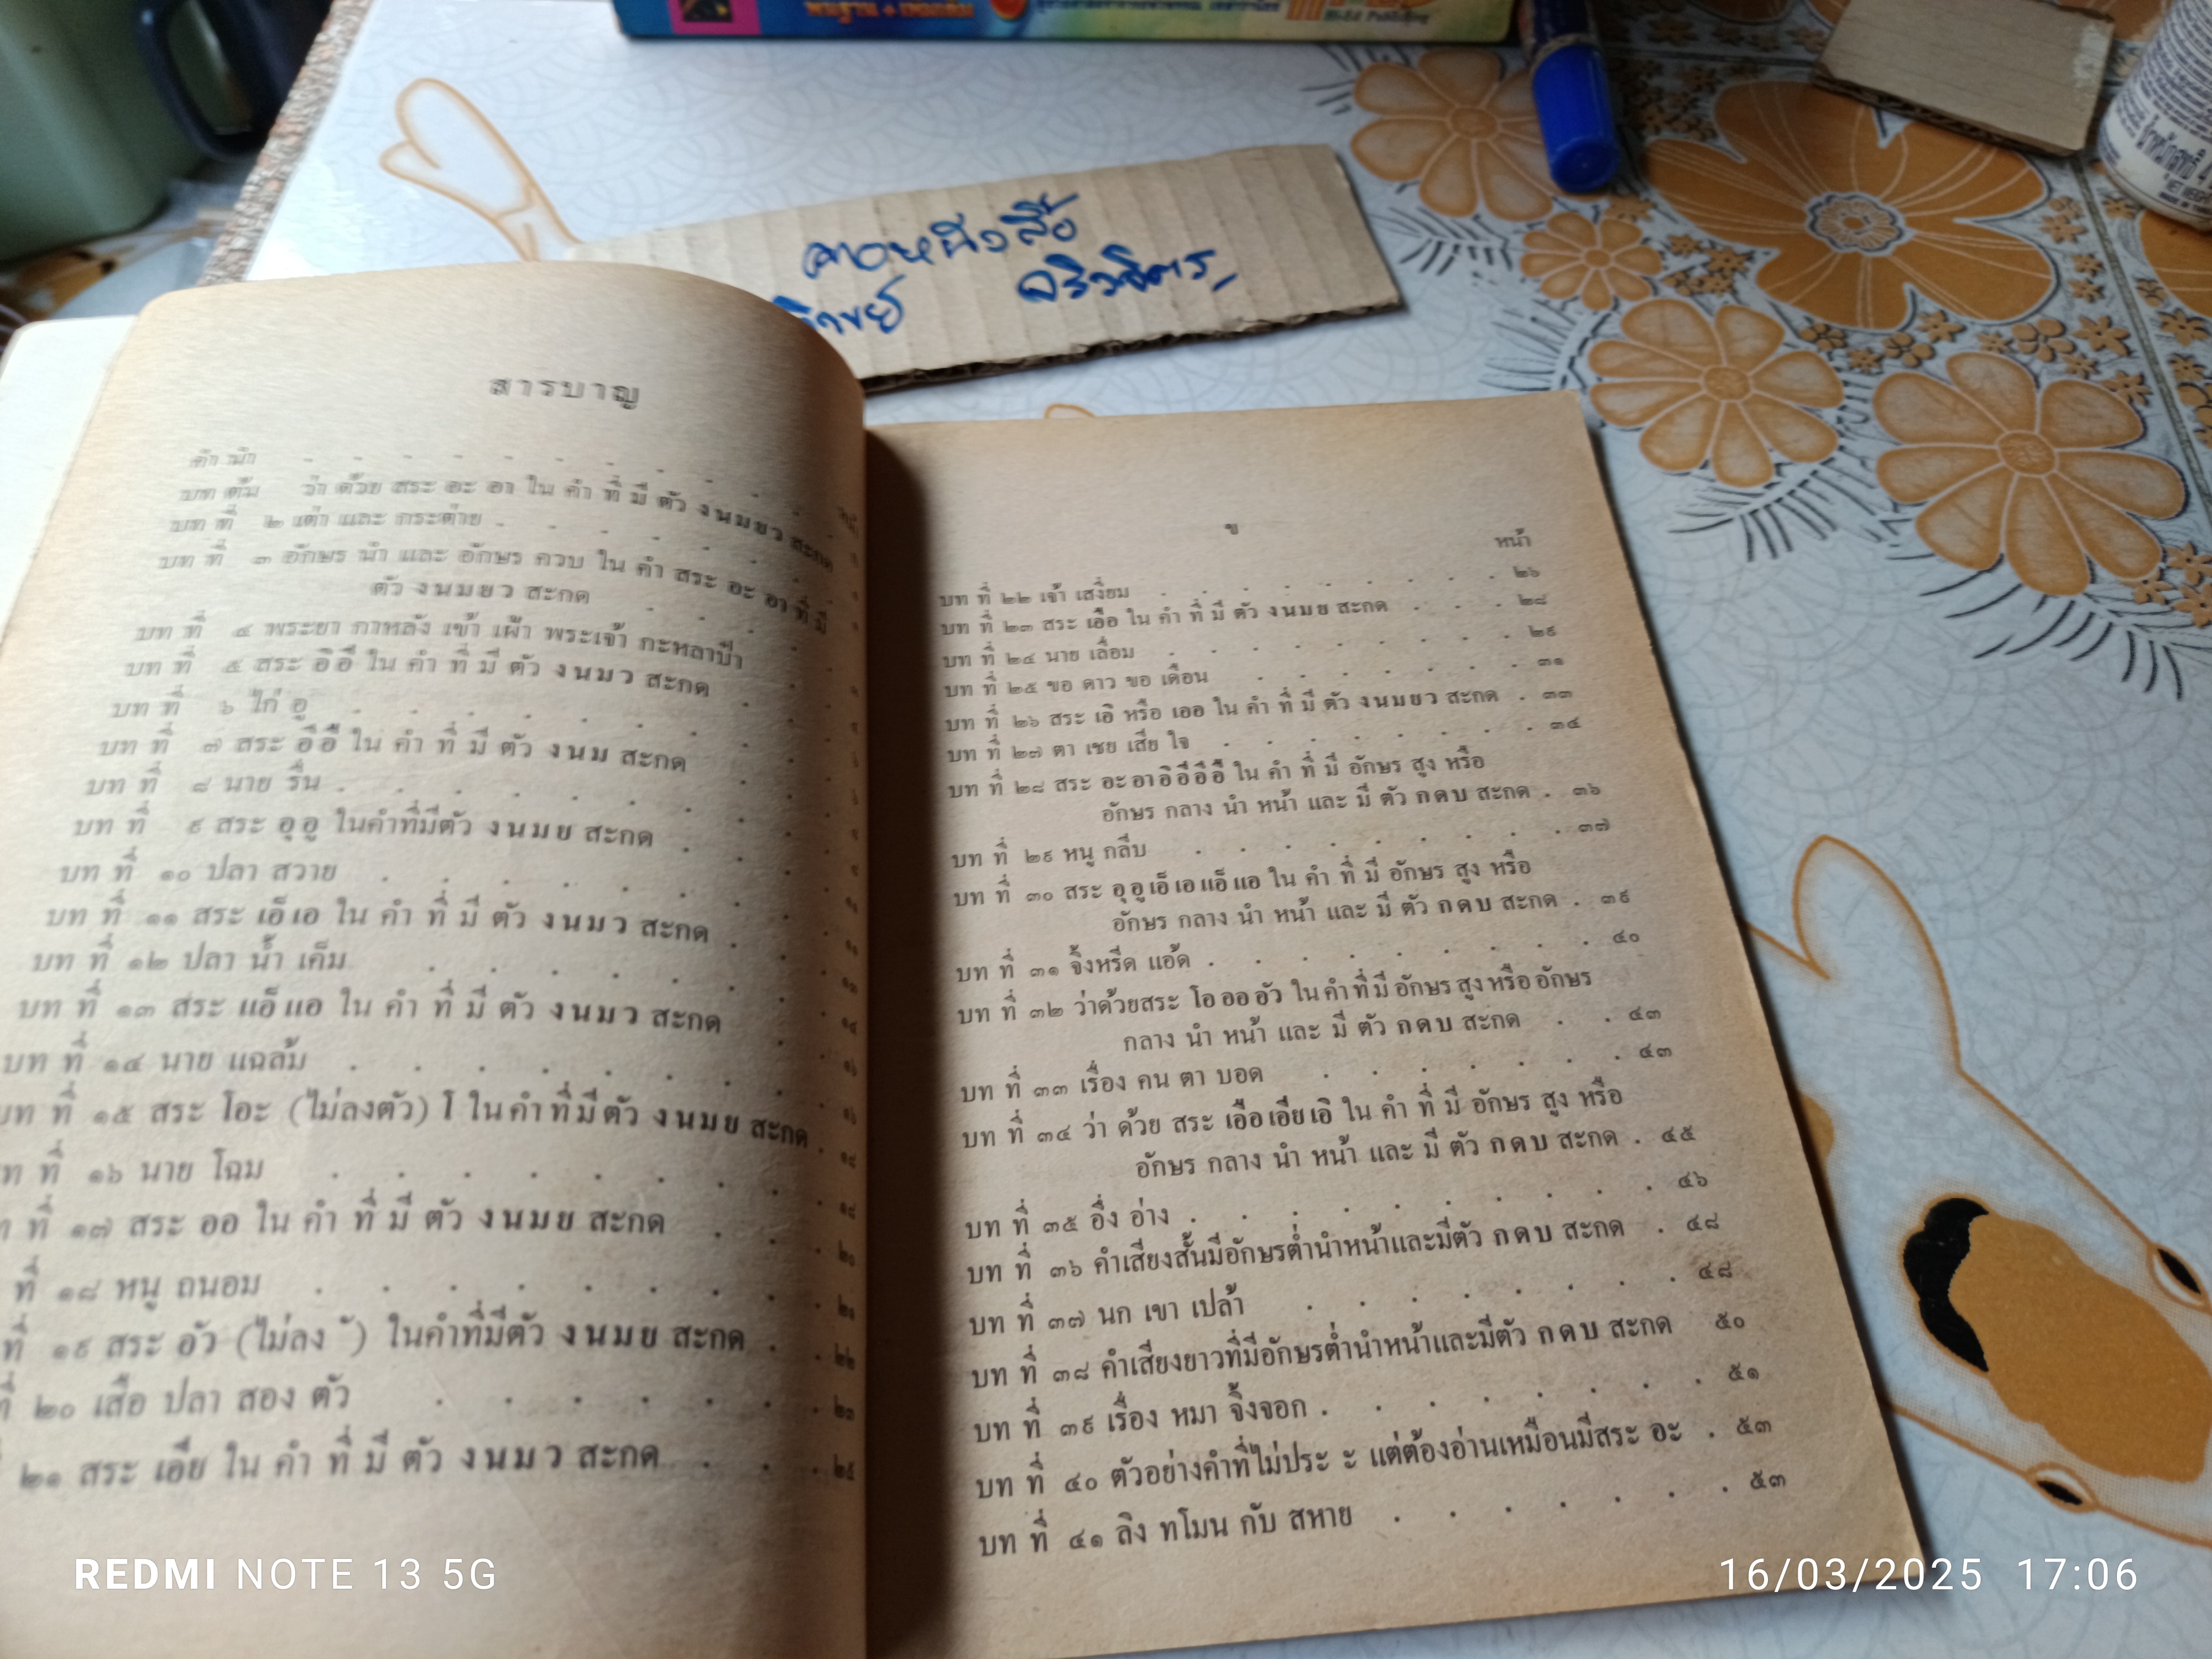 Hi-Ed Publishing
สารบาญ
คำ นำ
บท ต้น ว่า ด้วย สระ อะ อา ใน คำ ที่ มี ตัว งนมยว สะกด
บท ที่ ๒ เต่า และ กระต่าย
บท ที่ ๓ อักษร นำ และ อักษร ควบ ใน คำ สระ อะ อา ที่ มี
ตัว งนมยว สะกด
บท ที่ ๔ พระยา กาหลัง เข้า เฝ้า พระเจ้า กะหลาป๋า
บท ที่ ๕ สระ อิอี ใน คำ ที่ มี ตัว งนมว สะกด
บท ที่ ๖ ไก่ อู
บท ที่ ๗ สระ อึอื ใน คำ ที่ มี ตัว งนม สะกด
บท ที่ ๘ นาย รื่น
บท ที่ ๙ สระ อุอู ในคำที่มีตัว งนมย สะกด
บท ที่ ๑๐ ปลา สวาย
บท ที่ ๑๑ สระ เอ็เอ ใน คำ ที่ มี ตัว งนมว สะกด
บท ที่ ๑๒ ปลา น้ำ เค็ม
บท ที่ ๑๓ สระ แอ็แอ ใน คำ ที่ มี ตัว งนมว สะกด ๑๔
บท ที่ ๑๔ นาย แฉล้ม ๑๖
บท ที่ ๑๕ สระ โอะ (ไม่ลงตัว) โ ในคำที่มีตัว งนมย สะกด ๑๖
ท ที่ ๑๖ นาย โฉม ๑๘
ที่ ๑๗ สระ ออ ใน คำ ที่ มี ตัว งนมย สะกด ๑๘
ที่ ๑๘ หนู ถนอม ๒๐
ที่ ๑๙ สระ อัว (ไม่ลง ั) ในคำที่มีตัว งนมย สะกด ๒๑
ที่ ๒๐ เสือ ปลา สอง ตัว ๒๓
๒๑ สระ เอีย ใน คำ ที่ มี ตัว งนมว สะกด ๒๕
ข
หน้า
บท ที่ ๒๒ เจ้า เสงี่ยม ๒๖
บท ที่ ๒๓ สระ เอือ ใน คำ ที่ มี ตัว งนมย สะกด ๒๘
บท ที่ ๒๔ นาย เลื่อม ๒๙
บท ที่ ๒๕ ขอ ดาว ขอ เดือน ๓๑
บท ที่ ๒๖ สระ เอิ หรือ เออ ใน คำ ที่ มี ตัว งนมยว สะกด ๓๓
บท ที่ ๒๗ ตา เชย เสีย ใจ ๓๔
บท ที่ ๒๘ สระ อะอาอิอีอึอื ใน คำ ที่ มี อักษร สูง หรือ
อักษร กลาง นำ หน้า และ มี ตัว กดบ สะกด ๓๖
บท ที่ ๒๙ หนู กลีบ ๓๗
บท ที่ ๓๐ สระ อุอูเอ็เอแอ็แอ ใน คำ ที่ มี อักษร สูง หรือ
อักษร กลาง นำ หน้า และ มี ตัว กดบ สะกด ๓๙
บท ที่ ๓๑ จิ้งหรีด แอ้ด ๔๐
บท ที่ ๓๒ ว่าด้วยสระ โอ ออ อัว ในคำที่มี อักษร สูง หรือ อักษร
กลาง นำ หน้า และ มี ตัว กดบ สะกด ๔๓
บท ที่ ๓๓ เรื่อง คน ตา บอด ๔๓
บท ที่ ๓๔ ว่า ด้วย สระ เอือเอียเอิ ใน คำ ที่ มี อักษร สูง หรือ
อักษร กลาง นำ หน้า และ มี ตัว กดบ สะกด ๔๕
บท ที่ ๓๕ อึ่ง อ่าง ๔๖
บท ที่ ๓๖ คำเสียงสั้นมีอักษรต่ำนำหน้าและมีตัว กดบ สะกด ๔๘
บท ที่ ๓๗ นก เขา เปล้า ๔๘
บท ที่ ๓๘ คำเสียงยาวที่มีอักษรต่ำนำหน้าและมีตัว กดบ สะกด ๕๐
บท ที่ ๓๙ เรื่อง หมา จิ้งจอก ๕๑
บท ที่ ๔๐ ตัวอย่างคำที่ไม่ประ ะ แต่ต้องอ่านเหมือนมีสระ อะ ๕๓
บท ที่ ๔๑ ลิง ทโมน กับ สหาย ๕๓
REDMI NOTE 13 5G
16/03/2025 17:06